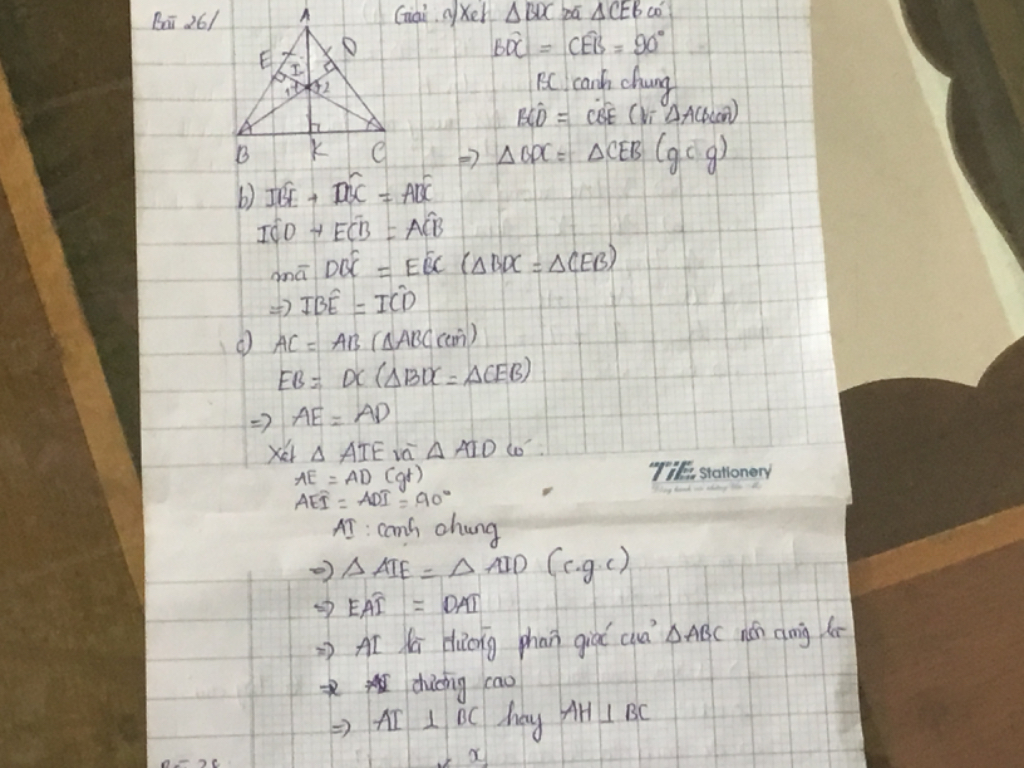 Bài 26/
Giải a) Xét ΔBDC và ΔCEB có
BDC = CEB = 90°
BC cạnh chung
BCD = CBE (Vì ΔABC cân)
=> ΔBDC = ΔCEB (g.c.g)
A
E
D
I
1
2
B
K
C
b) IBE + DBC = ABC
ICD + ECB = ACB
mà DBC = EBC (ΔBDC = ΔCEB)
=> IBE = ICD
c) AC = AB (ΔABC cân)
EB = DC (ΔBDC = ΔCEB)
=> AE = AD
Xét Δ AIE và Δ AID có
AE = AD (gt)
AEI = ADI = 90°
AI : cạnh chung
=> Δ AIE = Δ AID (c.g.c)
=> EAI = DAI
=> AI là đường phân giác của ΔABC nên cũng là
đường cao
=> AI ⊥ BC hay AH ⊥ BC
TiE Stationery
x